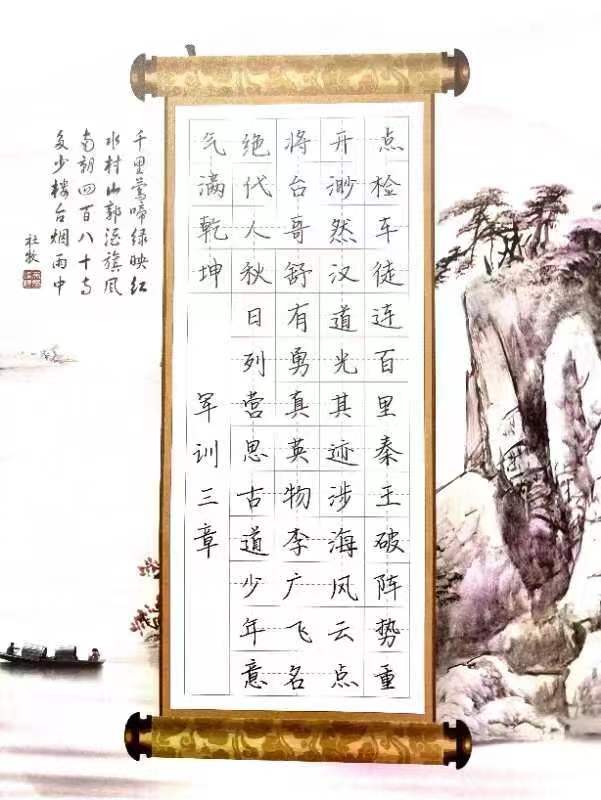 点检车徒连百里秦王破阵势重
开渺然汉道光其迹涉海风云点
将台哥舒有勇真英物李广飞名
绝代人秋日列营思古道少年意
气满乾坤
军训三章
千里莺啼绿映红
水村山郭酒旗风
南朝四百八十寺
多少楼台烟雨中
杜牧